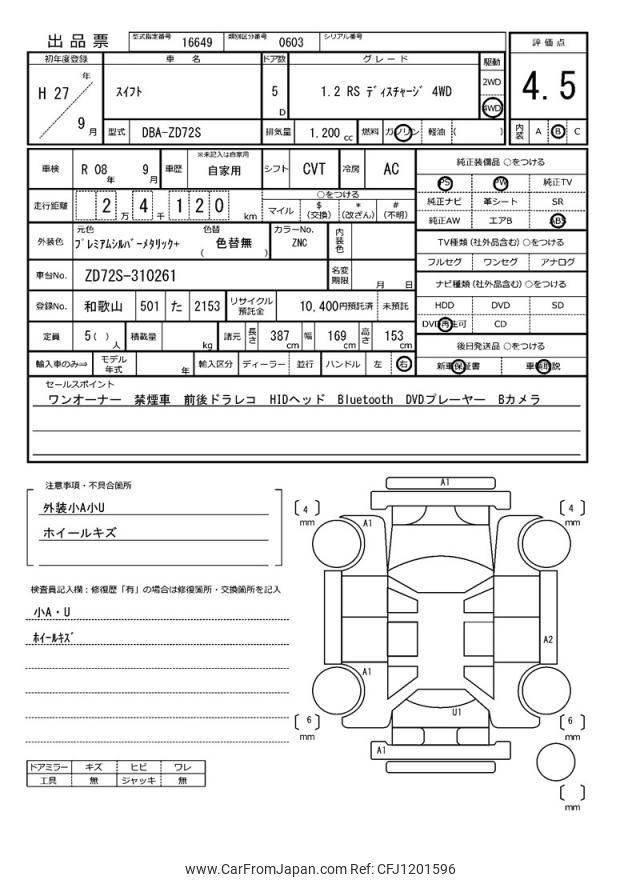 出品票 型式指定番号 16649 類別区分番号 0603 シリアル番号
初年度登録 車名 ドア数 グレード 駆動 評価点
H 27 年 9 月 スイフト 5 D 1.2 RS ディスチャージ 4WD 2WD 4WD 4.5
型式 DBA-ZD72S 排気量 1.200 cc 燃料 ガソリン 軽油 ( ) 内装 A B C
車検 R 08 年 9 月 車歴 ※未記入は自家用 自家用 シフト CVT 冷房 AC 純正装備品 ○をつける
PS PW 純正TV
走行距離 2 万 4 千 1 2 0 km ○をつける
マイル $ (交換) * (改ざん) # (不明) 純正ナビ 革シート SR
純正AW エアB ABS
外装色 元色 プレミアムシルバーメタリック+ 色替 ( 色替無 ) カラーNo. ZNC 内装色 TV種類 (社外品含む) ○をつける
フルセグ ワンセグ アナログ
車台No. ZD72S-310261 名変期限 月 日 ナビ種類 (社外品含む) ○をつける
登録No. 和歌山 501 た 2153 リサイクル預託金 10,400円預託済 未預託 HDD DVD SD
DVD再生可 CD
定員 5( ) 人 積載量 kg 諸元 長さ 387 cm 幅 169 cm 高さ 153 cm 後日発送品 ○をつける
輸入車のみ⇒ モデル年式 年 輸入区分 ディーラー 並行 ハンドル 左 右 新車保証書 車輌取説
セールスポイント
ワンオーナー 禁煙車 前後ドラレコ HIDヘッド Bluetooth DVDプレーヤー Bカメラ
注意事項・不具合箇所
外装小A小U
ホイールキズ
検査員記入欄：修復歴「有」の場合は修復箇所・交換箇所を記入
小A・U
ﾎｲｰﾙｷｽﾞ
ドアミラー キズ ヒビ ワレ
工具 無 ジャッキ 無
A1
[ 4 ] mm A1 [ 4 ] mm
A2
A1
U1
[ 6 ] mm [ 6 ] mm
A1
[ ] mm
www.CarFromJapan.com Ref: CFJ1201596